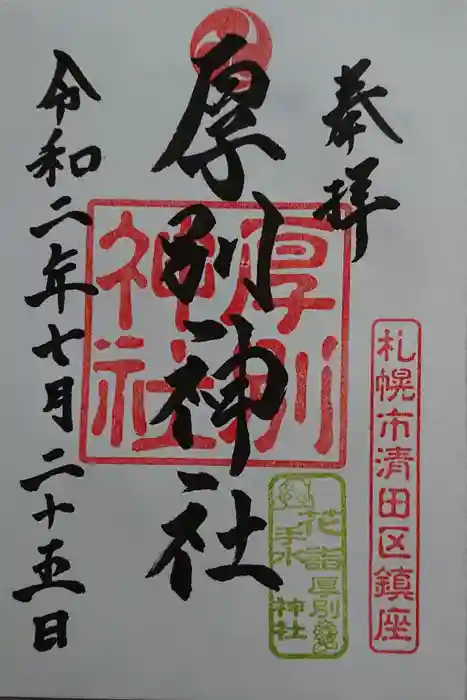 奉拝
厚別神社
令和二年七月二十五日
厚別
神社
札幌市清田区鎮座
花詣
手水
厚別
神社